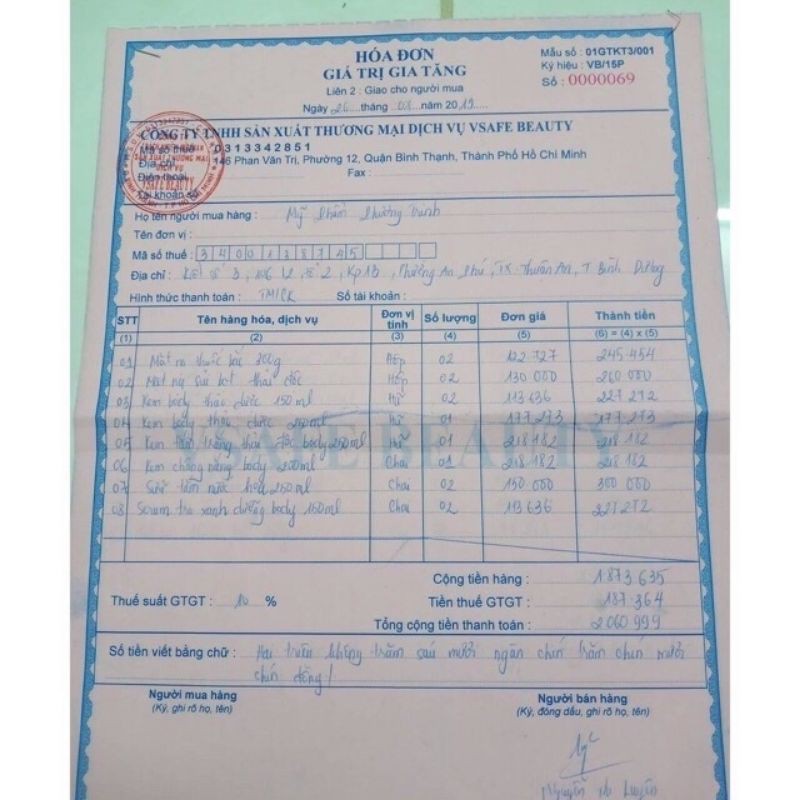 HÓA ĐƠN
GIÁ TRỊ GIA TĂNG
Liên 2 : Giao cho người mua
Ngày 26 tháng 03 năm 2019
Mẫu số : 01GTKT3/001
Ký hiệu : VB/15P
Số : 0000069
CÔNG TY TNHH SẢN XUẤT THƯƠNG MẠI DỊCH VỤ VSAFE BEAUTY
Mã số thuế 0313342851
Địa chỉ 146 Phan Văn Trị, Phường 12, Quận Bình Thạnh, Thành Phố Hồ Chí Minh
Điện thoại Fax :
Tài khoản số
Họ tên người mua hàng : Mỹ Phẩm Phương Trinh
Tên đơn vị :
Mã số thuế : 3400138745
Địa chỉ : 3, 2, Kp 1B, Phường An Phú, TX Thuận An, T Bình Dương
Hình thức thanh toán : TM/CK Số tài khoản :
STT Tên hàng hóa, dịch vụ Đơn vị tính Số lượng Đơn giá Thành tiền
(1) (2) (3) (4) (5) (6) = (4) x (5)
01 Mặt nạ thuốc bắc 300g Hộp 02 122 727 245.454
02 Mặt nạ sủi bọt thải độc Hộp 02 130 000 260 000
03 Kem body thảo dược 150ml Hũ 02 113 636 227 272
04 Kem body thảo dược 250ml Hũ 01 177 273 177 273
05 Kem trắng thải độc body 250ml Hũ 01 218 182 218 182
06 Kem chống nắng body 200ml Chai 01 218.182 218 182
07 Sữa tắm nước hoa 250ml Chai 02 150 000 300 000
08 Serum trà xanh dưỡng body 150ml Chai 02 113 636 227 272
VSAFE BEAUTY
Cộng tiền hàng : 1 873 635
Thuế suất GTGT : 10 % Tiền thuế GTGT : 187 364
Tổng cộng tiền thanh toán : 2 060 999
Số tiền viết bằng chữ : Hai triệu không trăm sáu mươi ngàn chín trăm chín mươi
chín đồng /
Người mua hàng Người bán hàng
(Ký, ghi rõ họ, tên) (Ký, đóng dấu, ghi rõ họ, tên)
Nguyễn